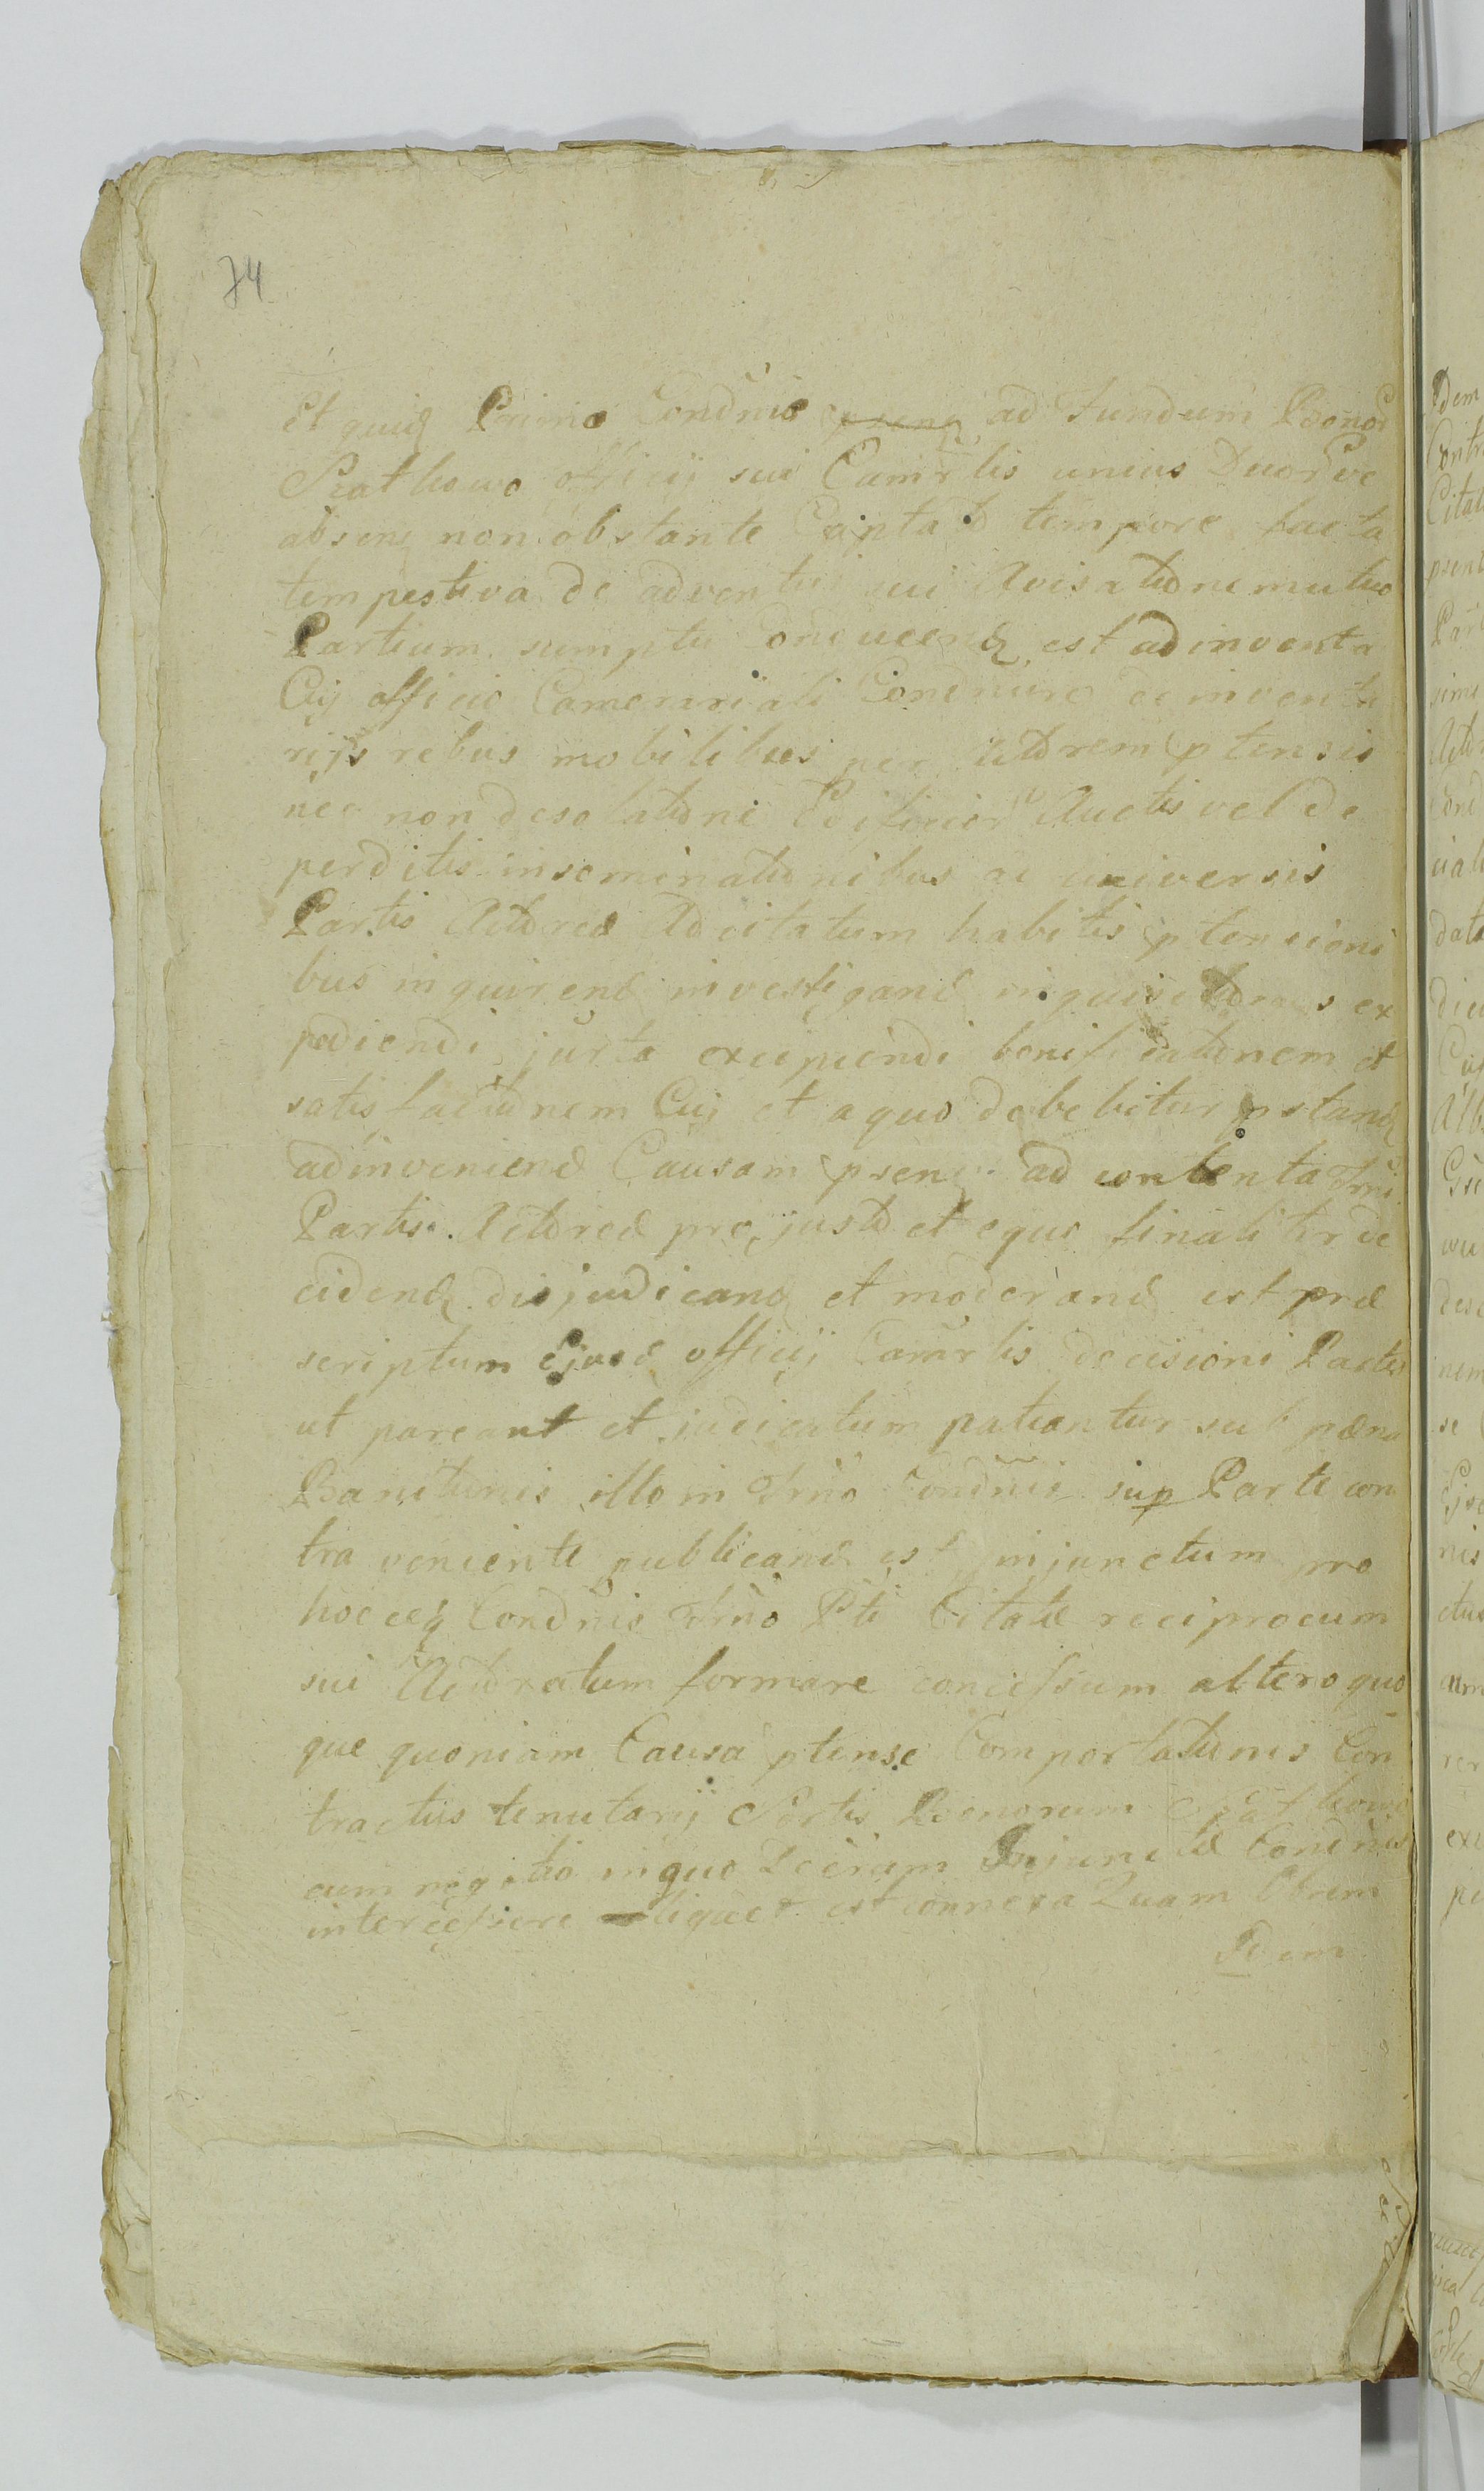 74
Et quidẽ Primo Condñis ad Fundum Bonor
officij sui Camrlis unius Duorve
absenẽ non obstante Captato tempore facta
tempestiva de adventu sui Avisatione mutuo
Partium sumptu conducenẽ est adinventa
Cuj officio Camerariali Condnure de inventa
rijs rebus mobilibus per Actorem ptensis
nec non desolatione Edificior Auctis vel de
perditis inseminationibus ac universis
Partis Actoreæ Ad citatum habitis ptensioni
bus inquirenđ investiganđ inquisitiones ex
pediendi jurta excipiendi bonificationem et
satisfactionem Cuj et a quo debebitur pstanđ
adinveniend Causam psenẽ ad contenta Trni
Partis Actoreæ pro justo et equo finaliter de
cidend disjudicand et moderand est præ
scriptum Ejusđ officij Camrlis decisioni Partes
ut pareant et judicatum patiantur sub pœna
Banitionis illo in Trno Condnis sup Parte con
tra veniente publicand est injunctum pro
hocceq Condnis Trno Pti Citatæ reciprocum
sui Actoratum formare concessum altero quo
que quoniam Causa ptensæ Comportationis Con
tractus tenutarij Sortis Bonorum
cum negotio in quo Injunctæ Condnis
intercessere liquet est connexa Quam Obrem
Idem